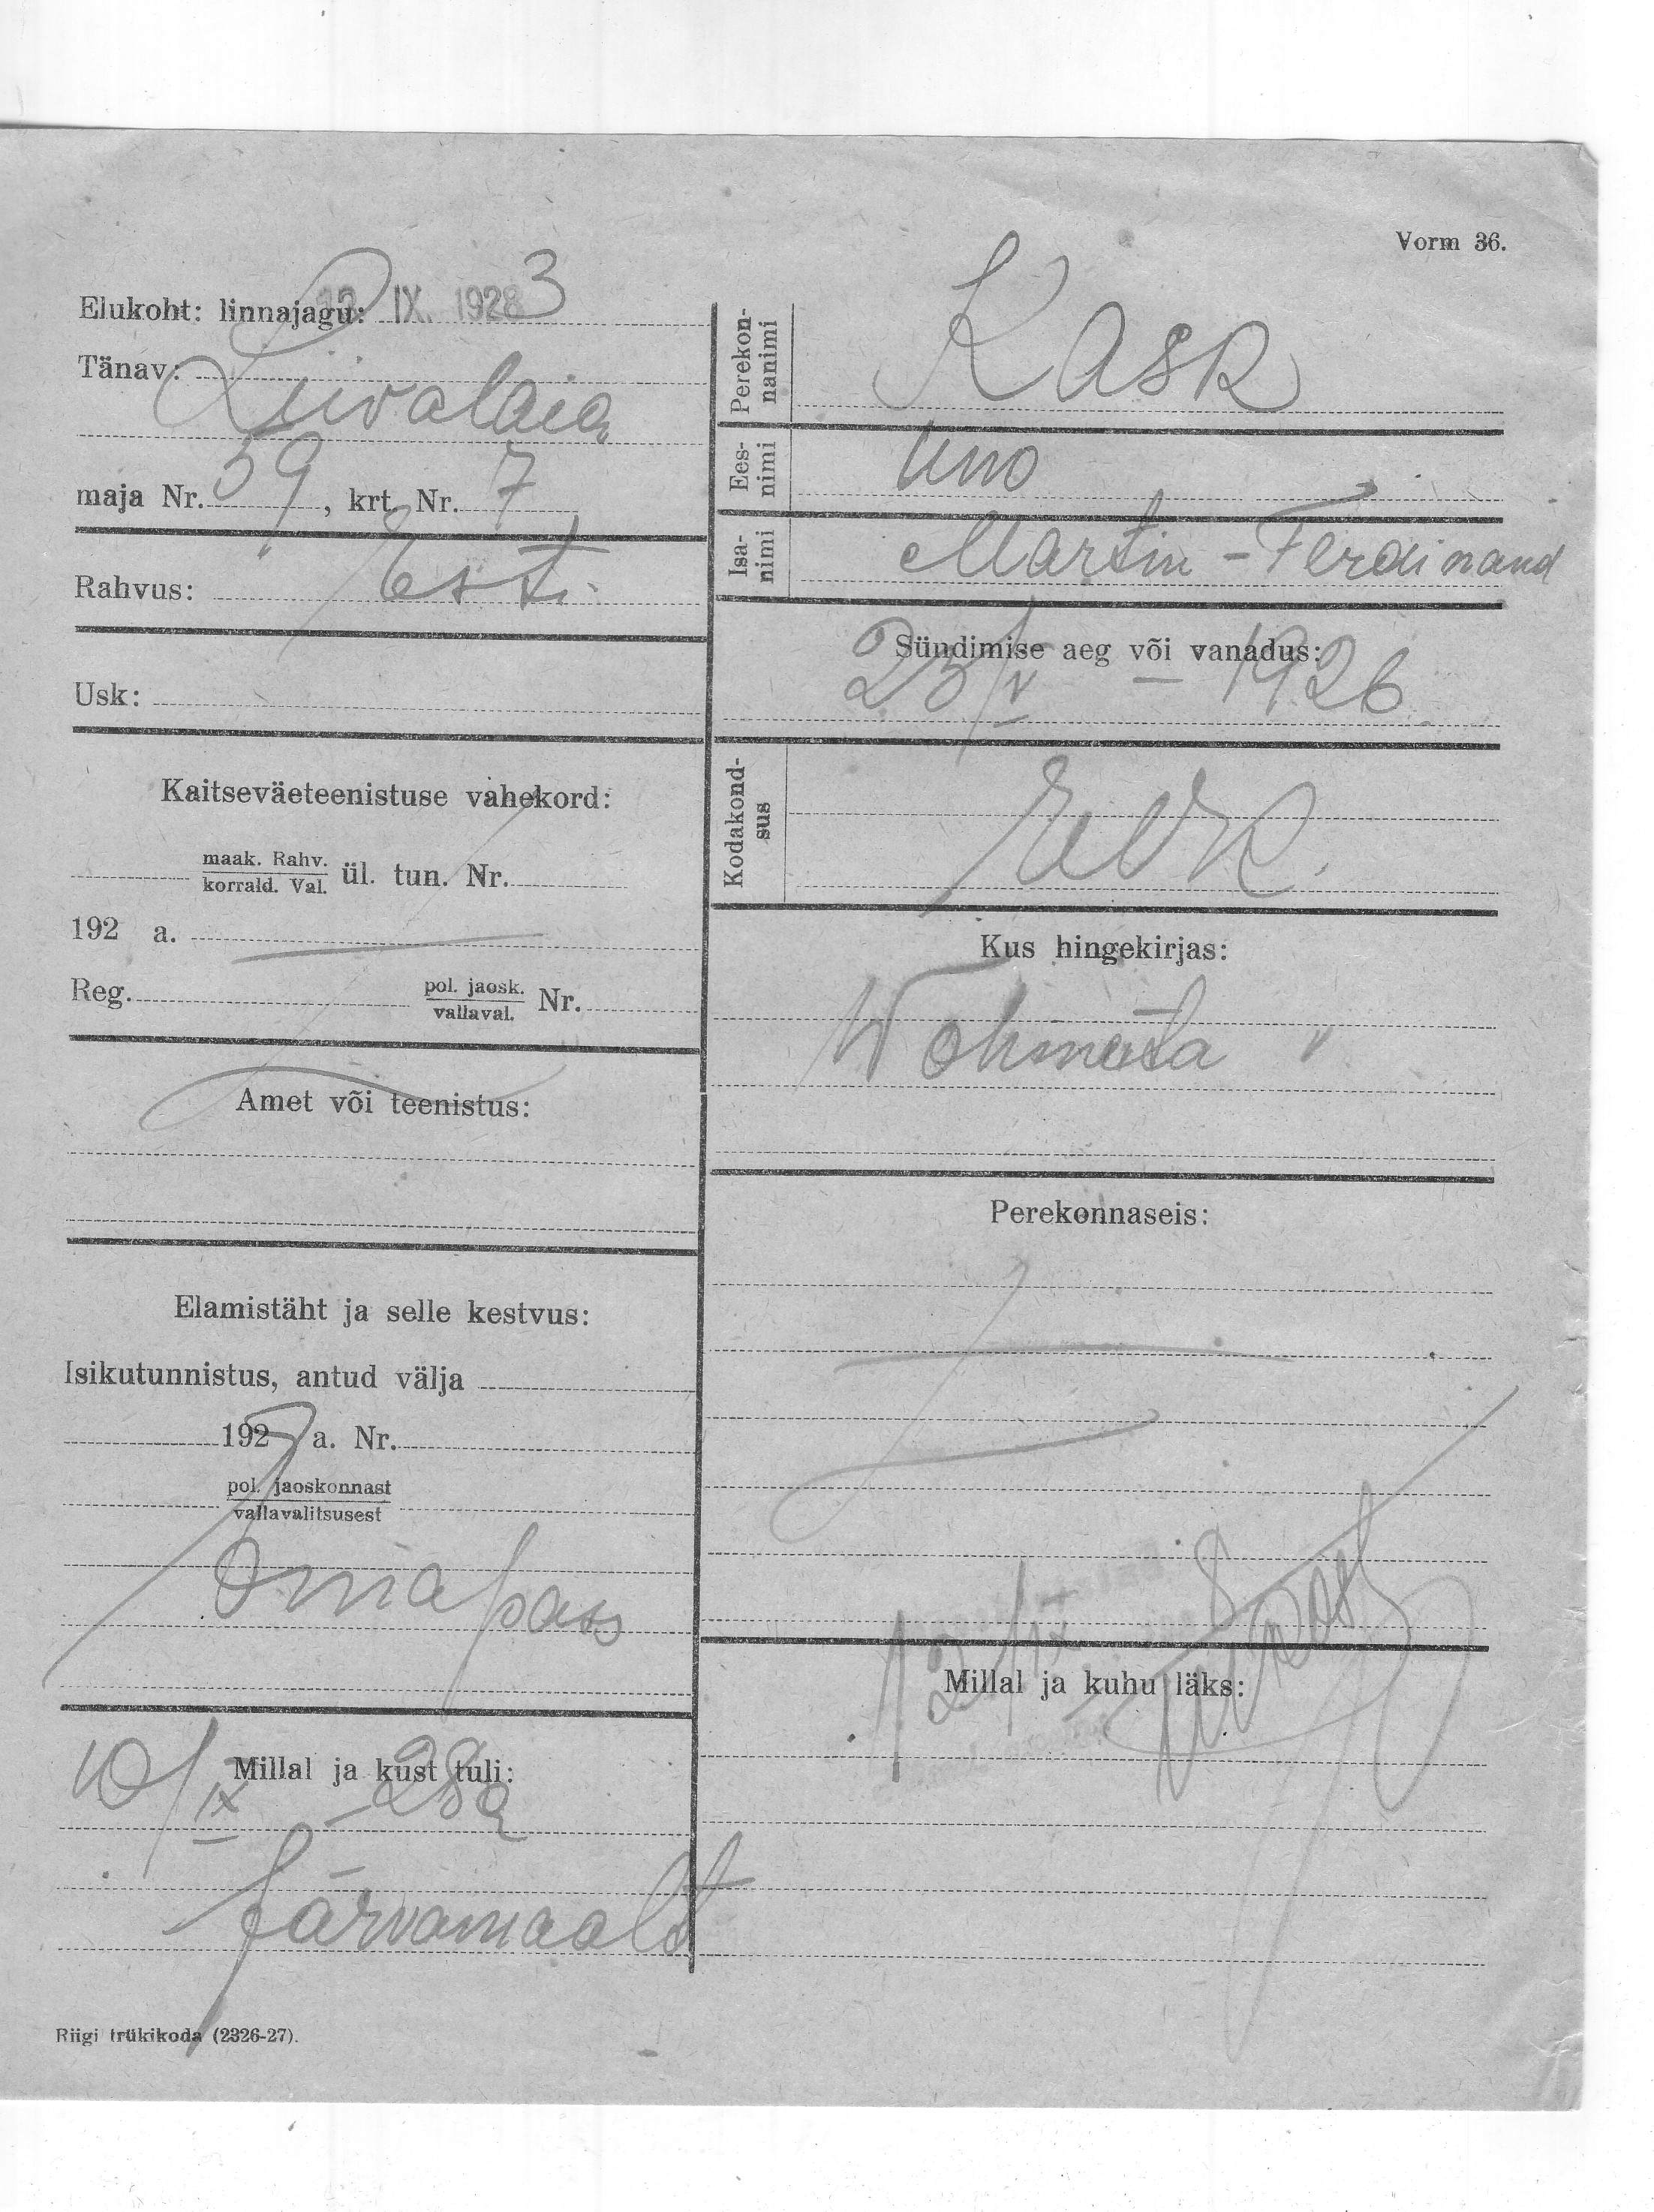 Vorm 36.
Elukoht: linnajagu: 12. IX. 1928 3
Tänav: Liivalaia
maja Nr. 59, krt. Nr. 7
Rahvus: Esti
Usk:
Kaitseväeteenistuse vahekord:
maak. Rahv.
korrald. Val. ül. tun. Nr.
192 a.
Reg. pol. jaosk.
vallaval. Nr.
Amet või teenistus:
Elamistäht ja selle kestvus:
Isikutunnistus, antud välja
192 a. Nr.
pol. jaoskonnast
vallavalitsusest
Oma pass
Millal ja kust tuli:
10/IX 28 a
Järvamaalt
Riigi trükikoda (2326-27).
Perekon-
nanimi Kask
Ees-
nimi Uno
Isa-
nimi Martin-Ferdinand
Sündimise aeg või vanadus:
25/V – 1926
Kodakond-
sus
Kus hingekirjas:
Wohmuta v
Perekonnaseis:
12/IX
Millal ja kuhu läks: